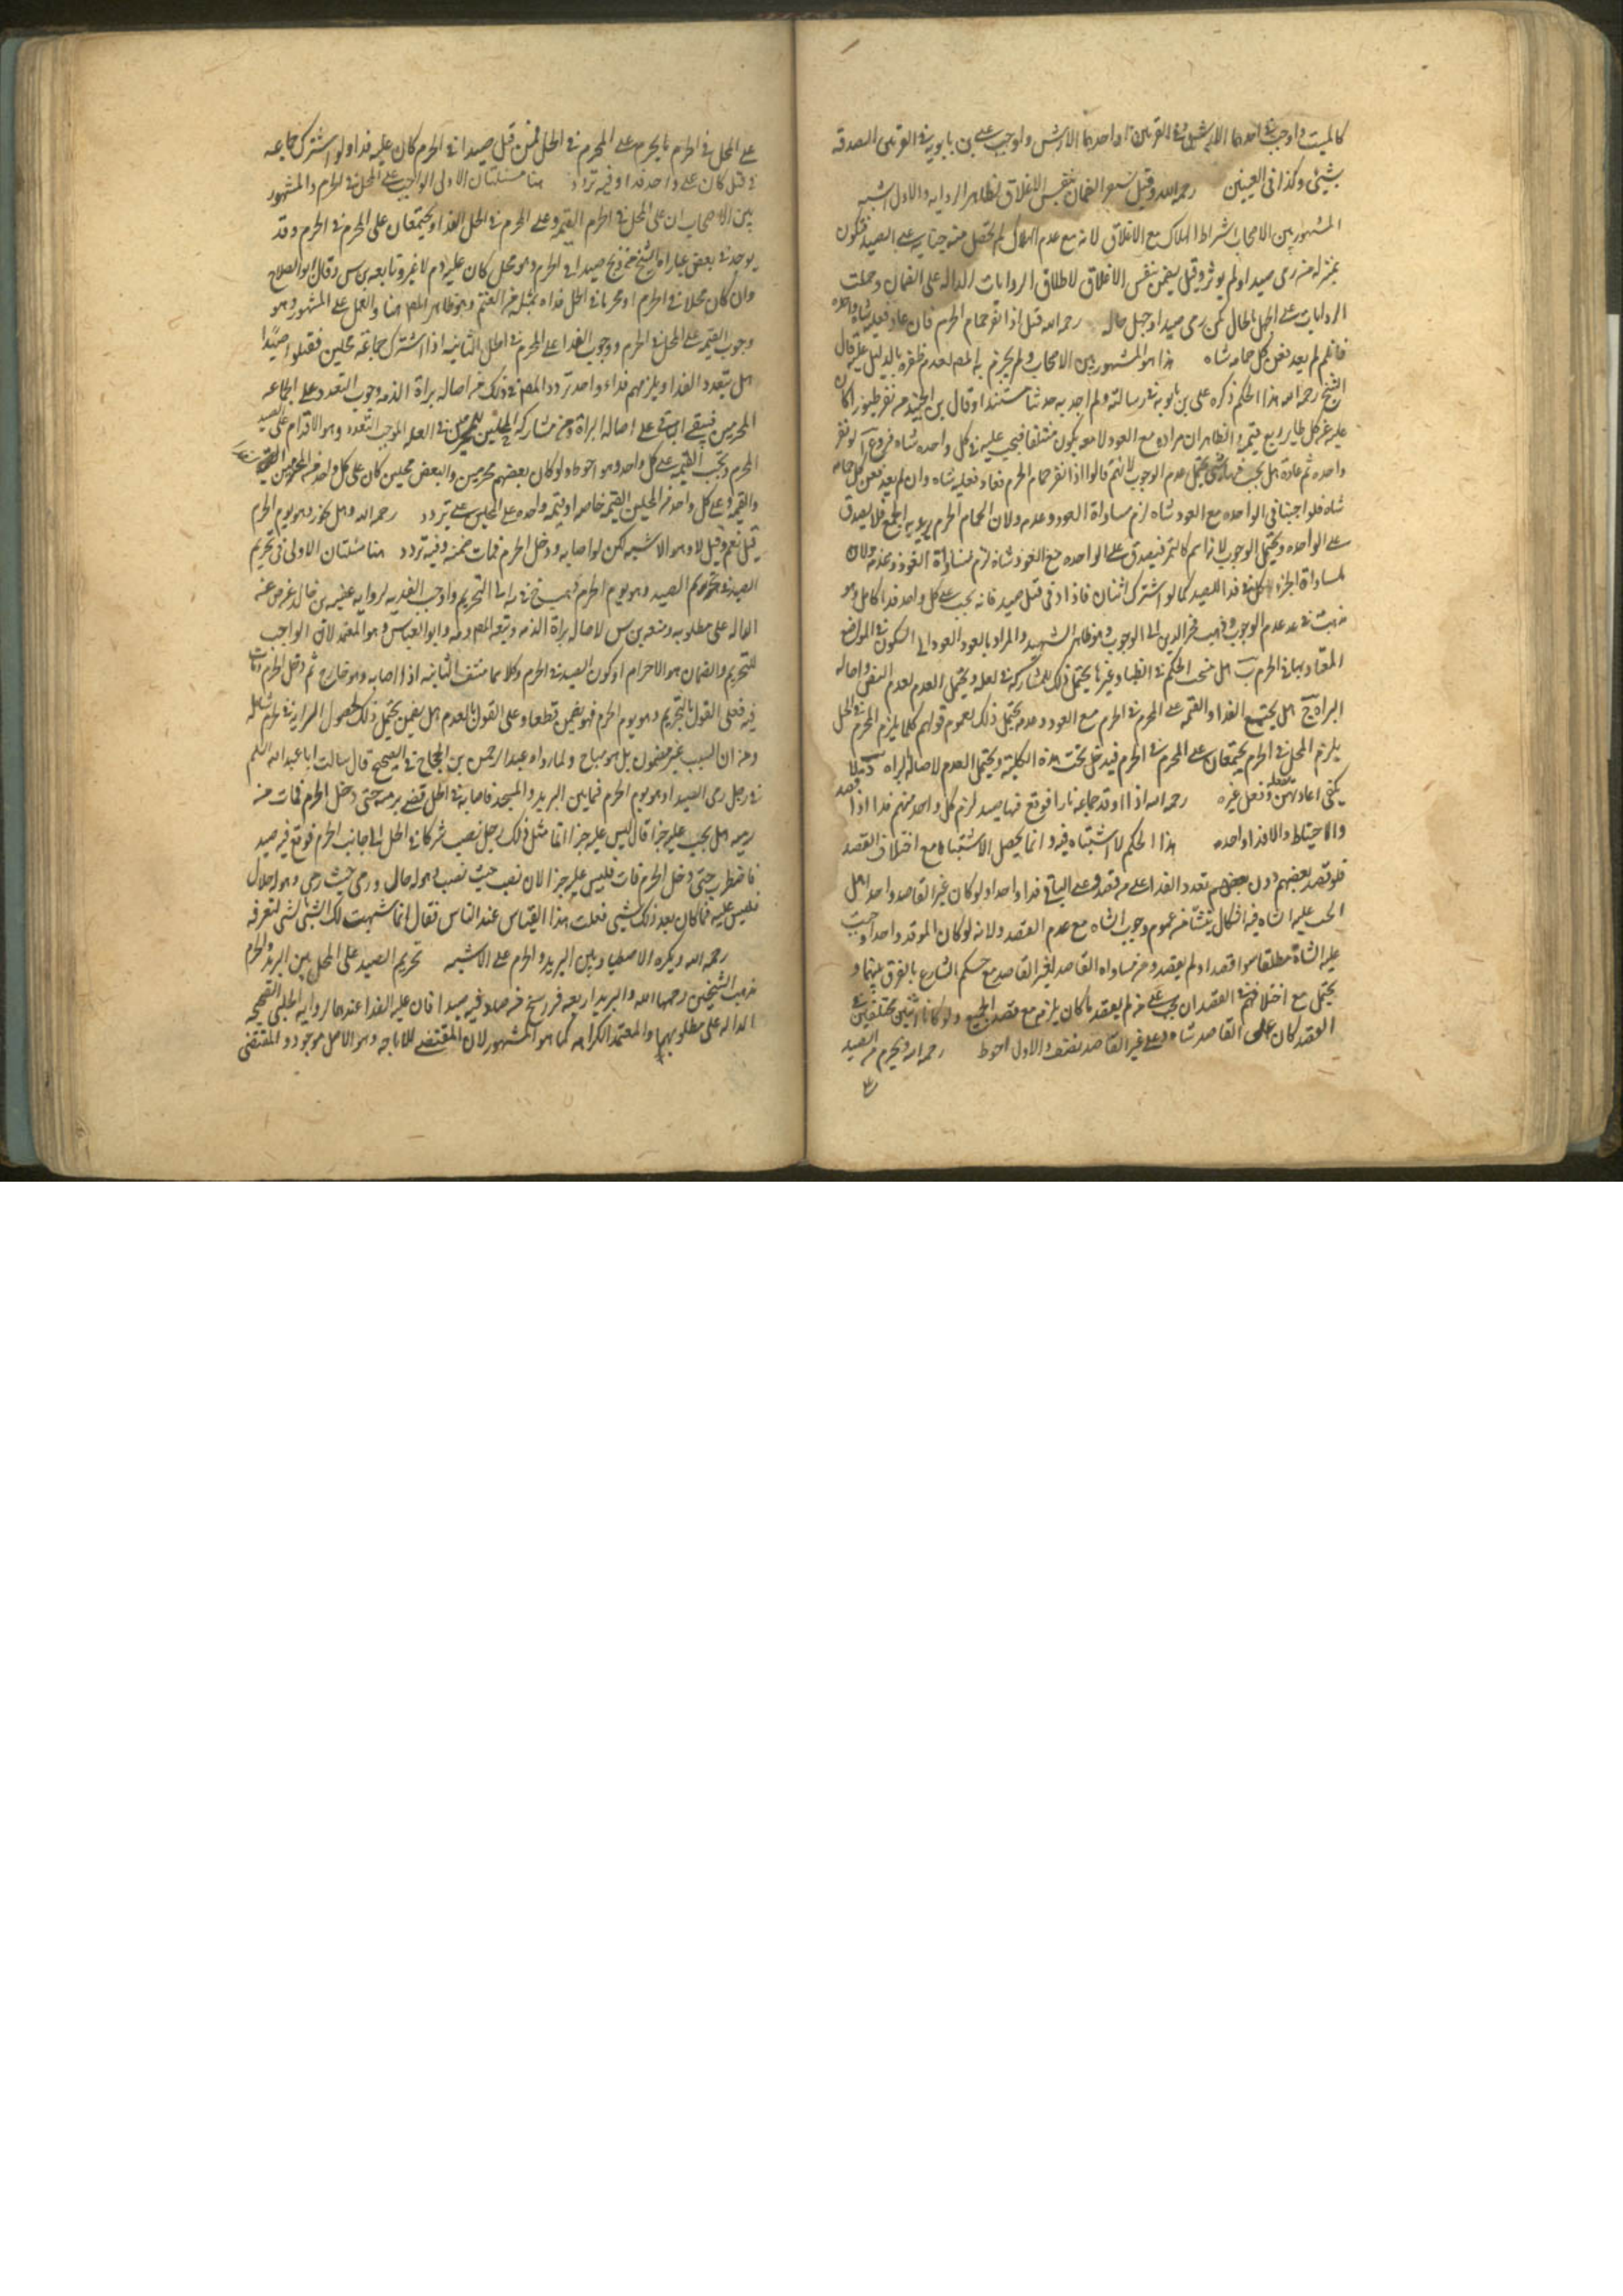 كالميت واوجب في احدهما الارش
بشيئ وكذا في العينين رحمه الله وقيل يستقر الضمان بنفس الاغلاق لظاهر الروايه والاول اشبه
المشهور بين الاصحاب اشتراط الهلاك مع الاغلاق لانه مع عدم الهلاك لم تحصل منه جنايه على الصيد فيكون
بمنزله من رمى صيدا ولم يوثر وقيل يضمن بنفس الاغلاق لاطلاق الروايات الداله على الضمان وحملت
الروايات على الجهل بالحال كمن رمى صيدا وجهل حاله رحمه الله قيل اذا نفر حمام الحرم فان عاد فعليه شاه واحده
فان لم يعد فعن كل حمامه شاه هذا هو المشهور بين الاصحاب ولم يجزم به المصنف لعدم ظفره بالدليل عليه قال
الشيخ رحمه الله هذا الحكم ذكره على بن بابويه في رسالته ولم اجد به حديثا مسندا وقال بن الجنيد من نفر طيور
عليه عن كل طاير ربع قيمته والظاهر ان مراده مع العود لا معه يكون متلفا فيجب عليه في كل واحده شاه فروع آ لو نفر
واحده ثم عادت هل يجب يحتمل عدم الوجوب لانهم قالوا اذا نفر حمام الحرم فعاد فعليه شاه وان لم يعد فعن كل حمامه
شاه فلو اوجبنا في الواحده مع العود شاه لزم مساواة العود وعدمه ولان الحمام الجمع فلا يصدق
على الواحده ويحتمل الوجوب لانه اسم فيصدق على الواحده مع العود شاه لزم مساواة العود وعدمه ولان
مساواة الجزء الكل في فداء الصيد كما لو اشترك اثنان في قتل صيد فانه يجب على كل واحد فدا كامل وهو
عدم الوجوب وذهب فخر الدين الى الوجوب وهو ظاهر الشهيد والمراد بالعود العود الى السكون في المواضع
المعتاد بها في الحرم ب هل ينسحب الحكم في الظباء وغيرها يحتمل ذلك للمشاركه في العله ويحتمل العدم لعدم النص واصالة
البراة ج هل يجتمع الفدا والقيمه على المحرم في الحرم مع العود وعدمه يحتمل ذلك لعموم قولهم كلما يلزم المحرم في الحل
يلزم المحل في الحرم يجتمعان على المحرم في الحرم فيدخل تحت هذه الكليه ويحتمل العدم لاصالة البراه
يكفى اعادتهن بفعله وفعل غيره رحمه الله اذا اوقد جماعه نارا فوقع فيها صيد لزم كل واحد منهم فدا اذا قصد
والاحتياط والا فدا واحد هذا الحكم لا اشتباه فيه وانما يحصل الاشتباه مع اختلاف القصد
فلو قصد بعضهم دون بعضهم تعدد الفدا على من قصد وعلى الباقي فدا واحد ولو كان غير القاصد واحدا هل
يجب عليه الشاه فيه اشكال ينشا من عموم وجوب الشاه مع عدم القصد ولانه لو كان الموقد واحدا وجبت
عليه الشاة مطلقا سوا قصد او لم يقصد ومن مساواه القاصد لغير القاصد مع حكم الشارع بالفرق بينهما و
يحتمل مع اختلافهم في القصد ان يجب على من لم يقصد ما كان يلزمه مع قصد الجميع ولو كانا اثنين مختلفين في
القصد كان على القاصد شاه وعلى غير القاصد نصف والاول احوط رحمه الله ويحرم من الصيد
على المحل في الحرم ما يحرم على المحرم في الحل فمن قتل صيدا في الحرم كان عليه فدا ولو اشترك جماعه
في قتله كان على واحد فدا وفيه تردد هنا مسئلتان الاولى الواجب على المحل في الحرم والمشهور
بين الاصحاب ان على المحل في الحرم القيمه وعلى المحرم في الحل الفدا ويجتمعان على المحرم في الحرم وقد
يوجد في بعض عبارات الشيخ من ذبح صيدا في الحرم وهو محل كان عليه دم لا غير وتابعه بن س وقال ابو الصلاح
وان كان محلا في الحرم او محرما في الحل فداه بمثله من الغنم وهو ظاهر المصنف هنا والعمل على المشهور وهو
وجوب القيمه على المحل في الحرم ووجوب الفدا على المحرم في الحل الثانيه اذا اشترك جماعه محلين فقتلوا صيدا
هل يتعدد الفدا او يلزمهم فداء واحد تردد المصنف في ذلك من اصالة براة الذمه وجوب التعدد على الجماعه
المحرمين فيبقى الباقي على اصالة البراة ومن مشاركة المحلين للمحرمين في العله الموجب التعدد وهو الاقدام على الصيد
المحرم وتجب القيمه على كل واحد وهو احوط ولو كان بعضهم محرمين والبعض محلين كان على كل واحد من المحرمين
والقيمه وعلى كل واحد من المحلين القيمه خاصه او قيمه واحده على المحلين على تردد رحمه الله وهل يجوز وهو يوم الحرم
قيل نعم وقيل لا وهو الاشبه لكن لو اصابه ودخل الحرم فمات ضمنه وفيه تردد هنا مسئلتان الاولى في تحريم
الصيد وهو يوم الحرم فذهب الشيخ الى التحريم واوجب الفديه لروايه عقبه بن خالد
الداله على مطلوبه ومنعه بن س لاصالة براة الذمه وتبعه المصنف وابو العباس وهو المعتمد لان الواجب
للتحريم والضمان هو الاحرام او كون الصيد في الحرم وكلاهما منتف الثانيه اذا اصابه وهو خارج ثم دخل الحرم فمات
فيه فعلى القول بالتحريم وهو يوم الحرم فهو يضمن قطعا وعلى القول بالعدم هل يضمن يحتمل ذلك لحصول السرايه في الحرم
ومن ان السبب غير مضمون بل هو مباح ولما رواه عبد الرحمن بن الحجاج في الصحيح قال سالت ابا عبد الله عليه السلم
في رجل رمى الصيد وهو يوم الحرم فيما بين البريد والمسجد فاصابه في الحل فمضى برميته حتى دخل الحرم فمات من
رميه هل يجب عليه جزا قال ليس عليه جزا انما مثل ذلك رجل نصب شركا في الحل الى جانب الحرم فوقع فيه صيد
فاضطرب حتى دخل الحرم فمات فليس عليه جزا لانه نصب حيث نصب وهو له حلال ورمى حيث رمى وهو له حلال
فليس عليه فما كان بعد ذلك شيئ فقلت هذا القياس عند الناس فقال انما شبهت لك الشئ بالشئ لتعرفه
رحمه الله ويكره الاصطياد بين البريد والحرم على الاشبه تحريم الصيد على المحل بين البريد والحرم
مذهب الشيخين رحمهما الله والبريد اربعه فراسخ فمن صاد فيه صيدا كان عليه الفدا عندهما لروايه الحلبى الصحيحه
الداله على مطلوبهما والمعتمد الكراهه كما هو المشهور لان المقتضى للاباحه وهو الاصل موجود والمقتضى